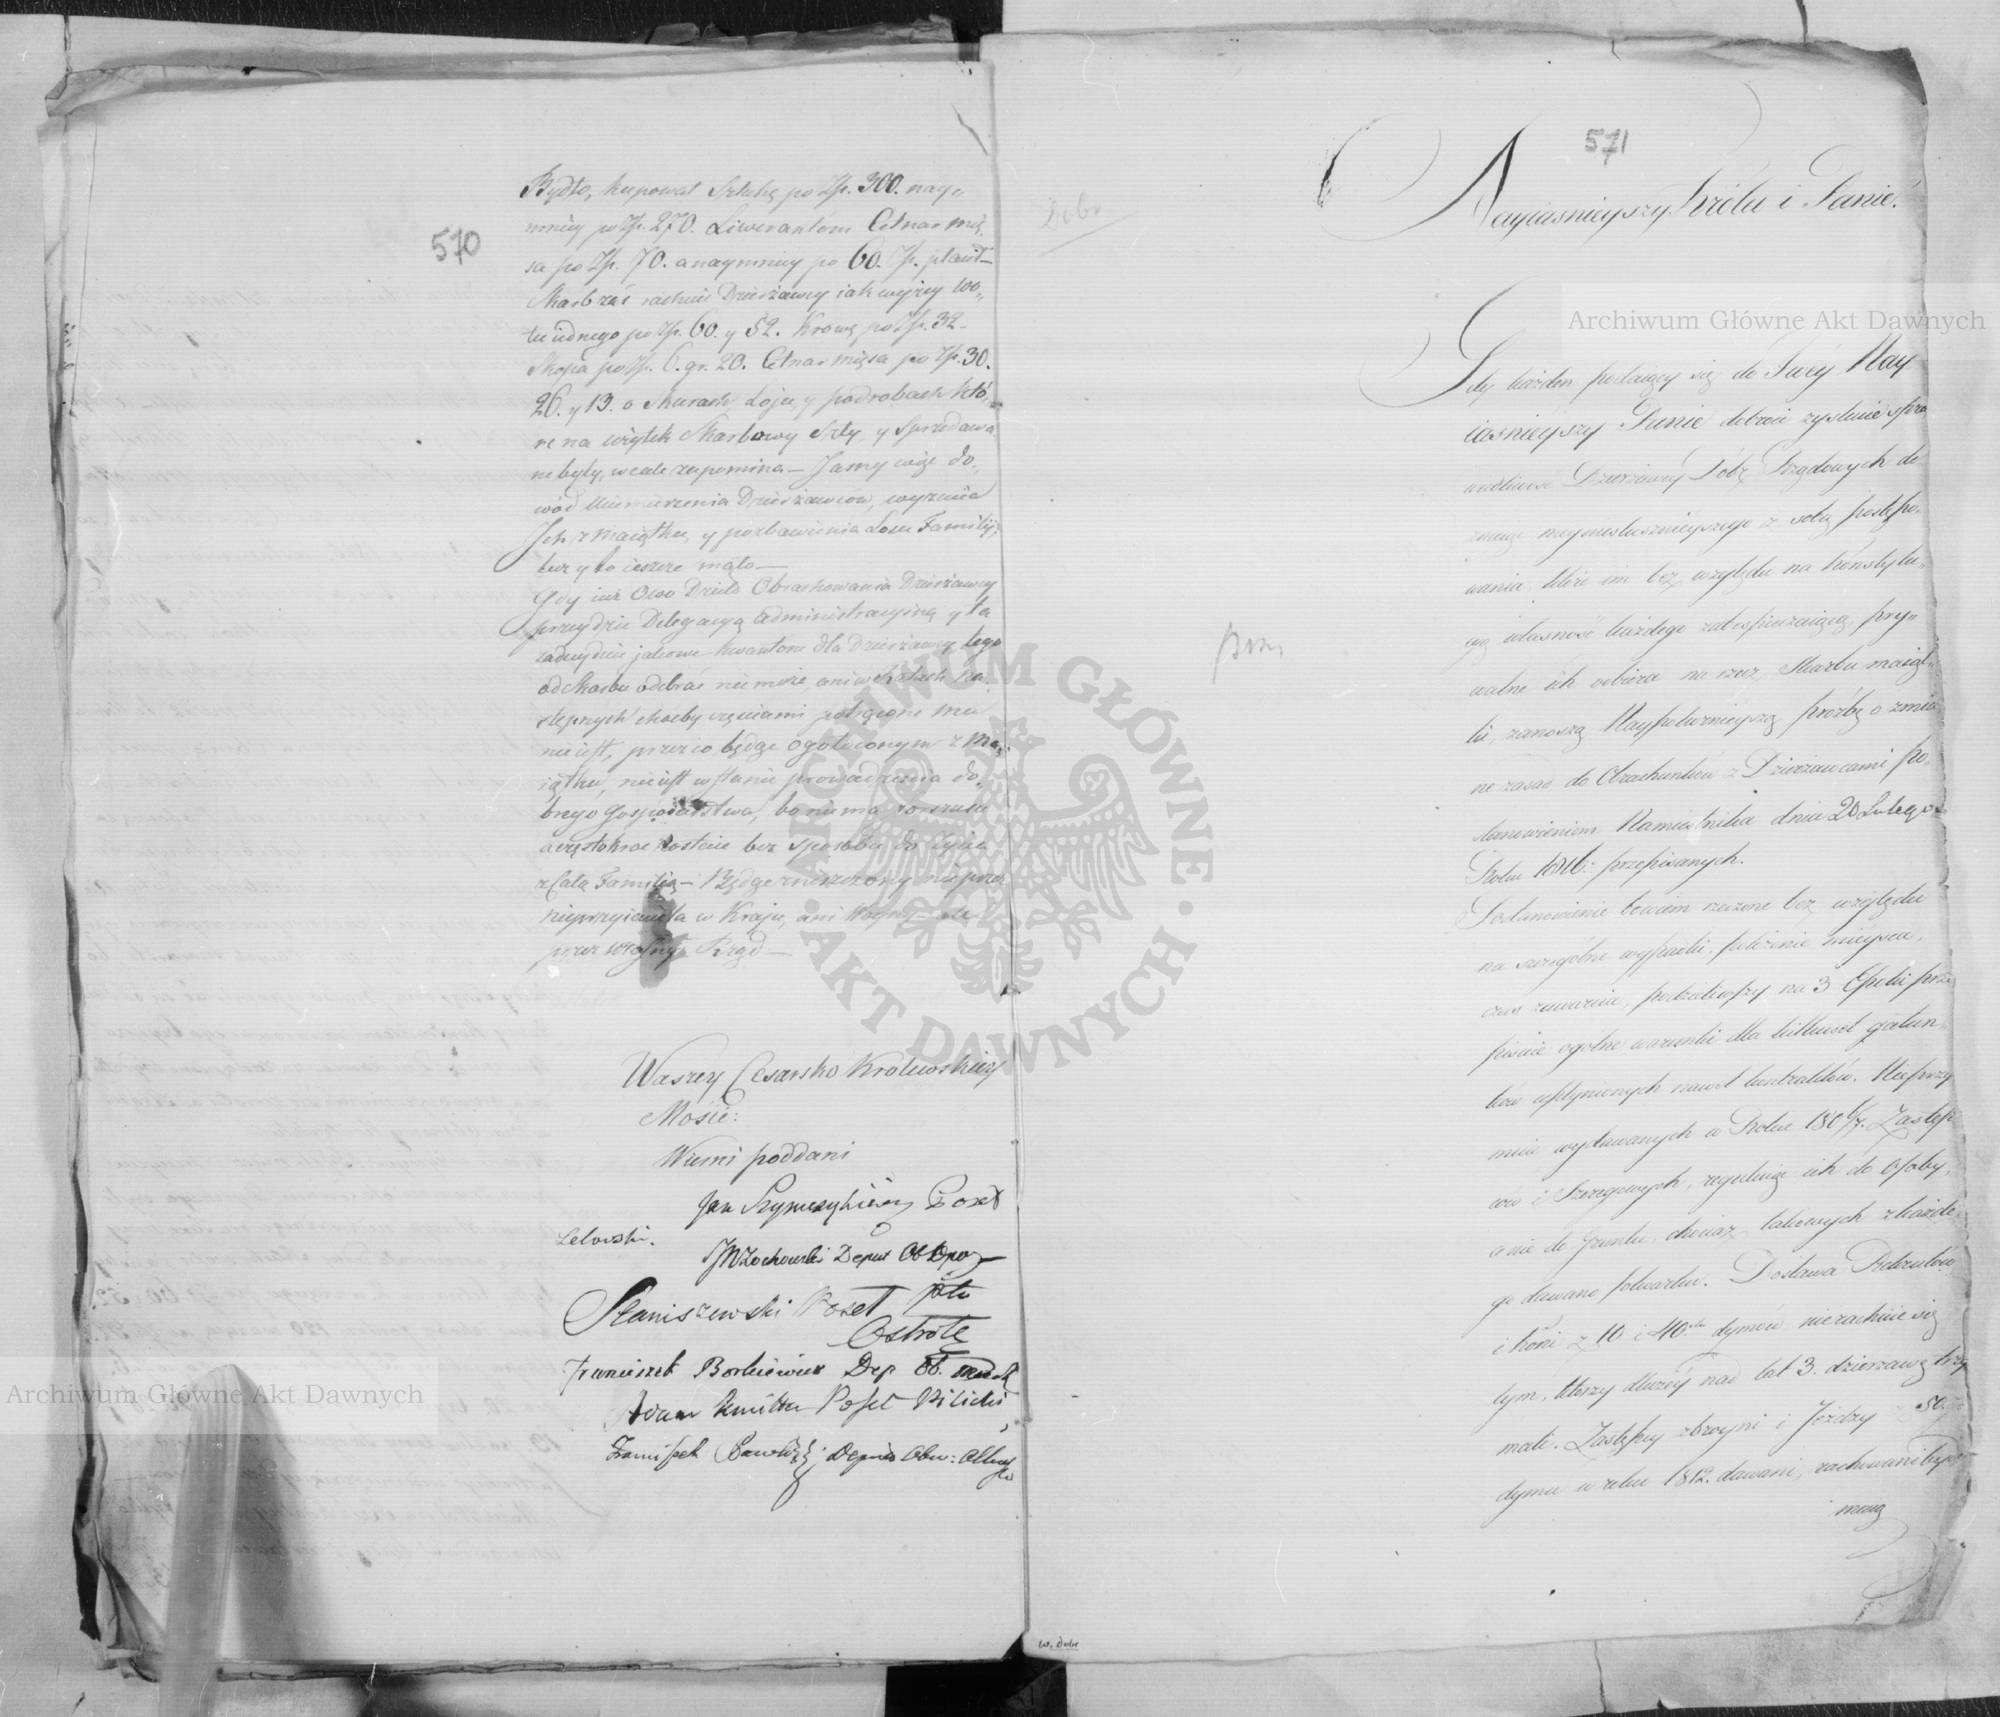 570
Bydło, kupował Sztukę po Zp. 300. nay„
mniey po Zp. 270. Liwerantom Cetnar mię„
sa po Zp. 70. a naymniey po 60. Zp. płacił—
Skarb zaś rachuie Dzierżawcy iak wyżey woo„
łu iednego po Zp. 60. y 52. Krowę po Zp. 32—
Skopa po Zp. 6. gr. 20. Cetnar mięsa po Zp. 30.
26. y 13. o Skurach Łoju, y podrobach któ„
re na użytek Skarbowy Szły, y Sprzedawa„
ne były, wcale zapomina— Jamy więc do„
wód Dzierżawców, wyzucia
Ich z Maiątku, y pozbawienia Losu Familij;
lecz y to ieszcze mało—
Gdy iuż Owo Dzieło Obrachowania Dzierżawcy
przeydzie Delegacyą Administracyiną y ta
jakowe kwantum dla Dzierżawcy, tego
od Skarbu odebrać nie może, ani w Ratach na„
stępnych choćby częściami potrącone mu
nie iest, przez co będąc ogołoconym z Ma„
iątku, nie iest w stanie prowadzenia do„
brego Gospodarstwa, bo nie ma
a częstokroć zostaie bez Sposobu do Życia
z Całą Familią— Będąc zniszczony nie przez
nieprzyiaciela w Kraju, ani Woynę ale
przez własny Rząd—
Waszey Cesarsko Krolewskiey
Mości:
Wierni poddani
Jan Poseł
Lelowski.
Deput
Staniszewski Poseł ptu
Ostrołę
Franciszek Borkiewicz Dep. Ob.
Adam Poseł Pilicki
Deput Obw: Olkus
Archiwum Główne Akt Dawnych
571
Nayiasnieyszy Królu i Panie!
Archiwum Główne Akt Dawnych
Gdy każden podaiący się do Twéy Nay
iasnieyszy Panie dobroci zyskuie spra
wiedliwość Dzierżawcy Dóbr Rządowych do
znaiąc nayniesłusznieyszego z sobą postępo„
wania które im bez względu na konstytu„
cyą własność każdego zabespieczaiącą, pry„
watne ich odbiera na rzecz Skarbu maiąt„
ki, zanoszą Naypokornieyszą prożbę o zmia
nę zasad do Obrachunków z Dzierżawcami Po„
stanowieniem Namiestnika dnia 20 Lutego
Roku 1816: przepisanych.
Postanowienie bowiem rzeczone bez względu
na szczególne wypadki, położenie mieysca,
czas zawarcia, podzieliwszy na 3 Epoki prze
pisuie ogólne warunki dla kilkuset gatun„
ków upłynionych nawet kontraktów. Nieprzy
muie wydawanych w Roku 1806/7. Zastęp
ców i Szeregowych, reguluiąc ich do osoby,
a nie do gruntu, chociaż takowych z każde„
go dawano folwarku. Dostawa Rekrutów
i koni z 10 i 40stu dymów nierachuie się
tym, którzy dłużéy nad lat 3. dzierzawę trzy
mali. Zastępcy zbroyni i Jeźdzcy z 50.
dymu w roku 1812. dawani, rachowani być
maią
ARCHIWUM GŁÓWNE · AKT DAWNYCH ·